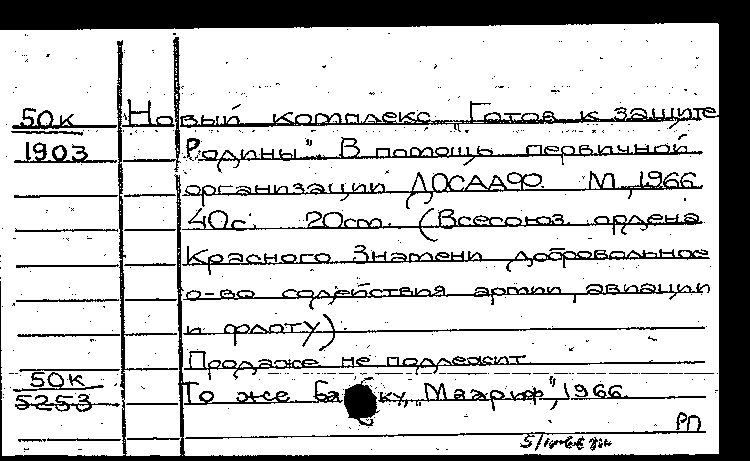 50к Новый комплекс „Готов к защите
1903 Родины". В помощь первичной
организации ДОСААФ. М., 1966
40с. 20см. (Всесоюз. ордена
Красного Знамени добровольное
о-во содействия армии, авиации
и флоту).
Продаже не подлежит
50к
5253 То же Баку, „Маариф", 1966.
РП